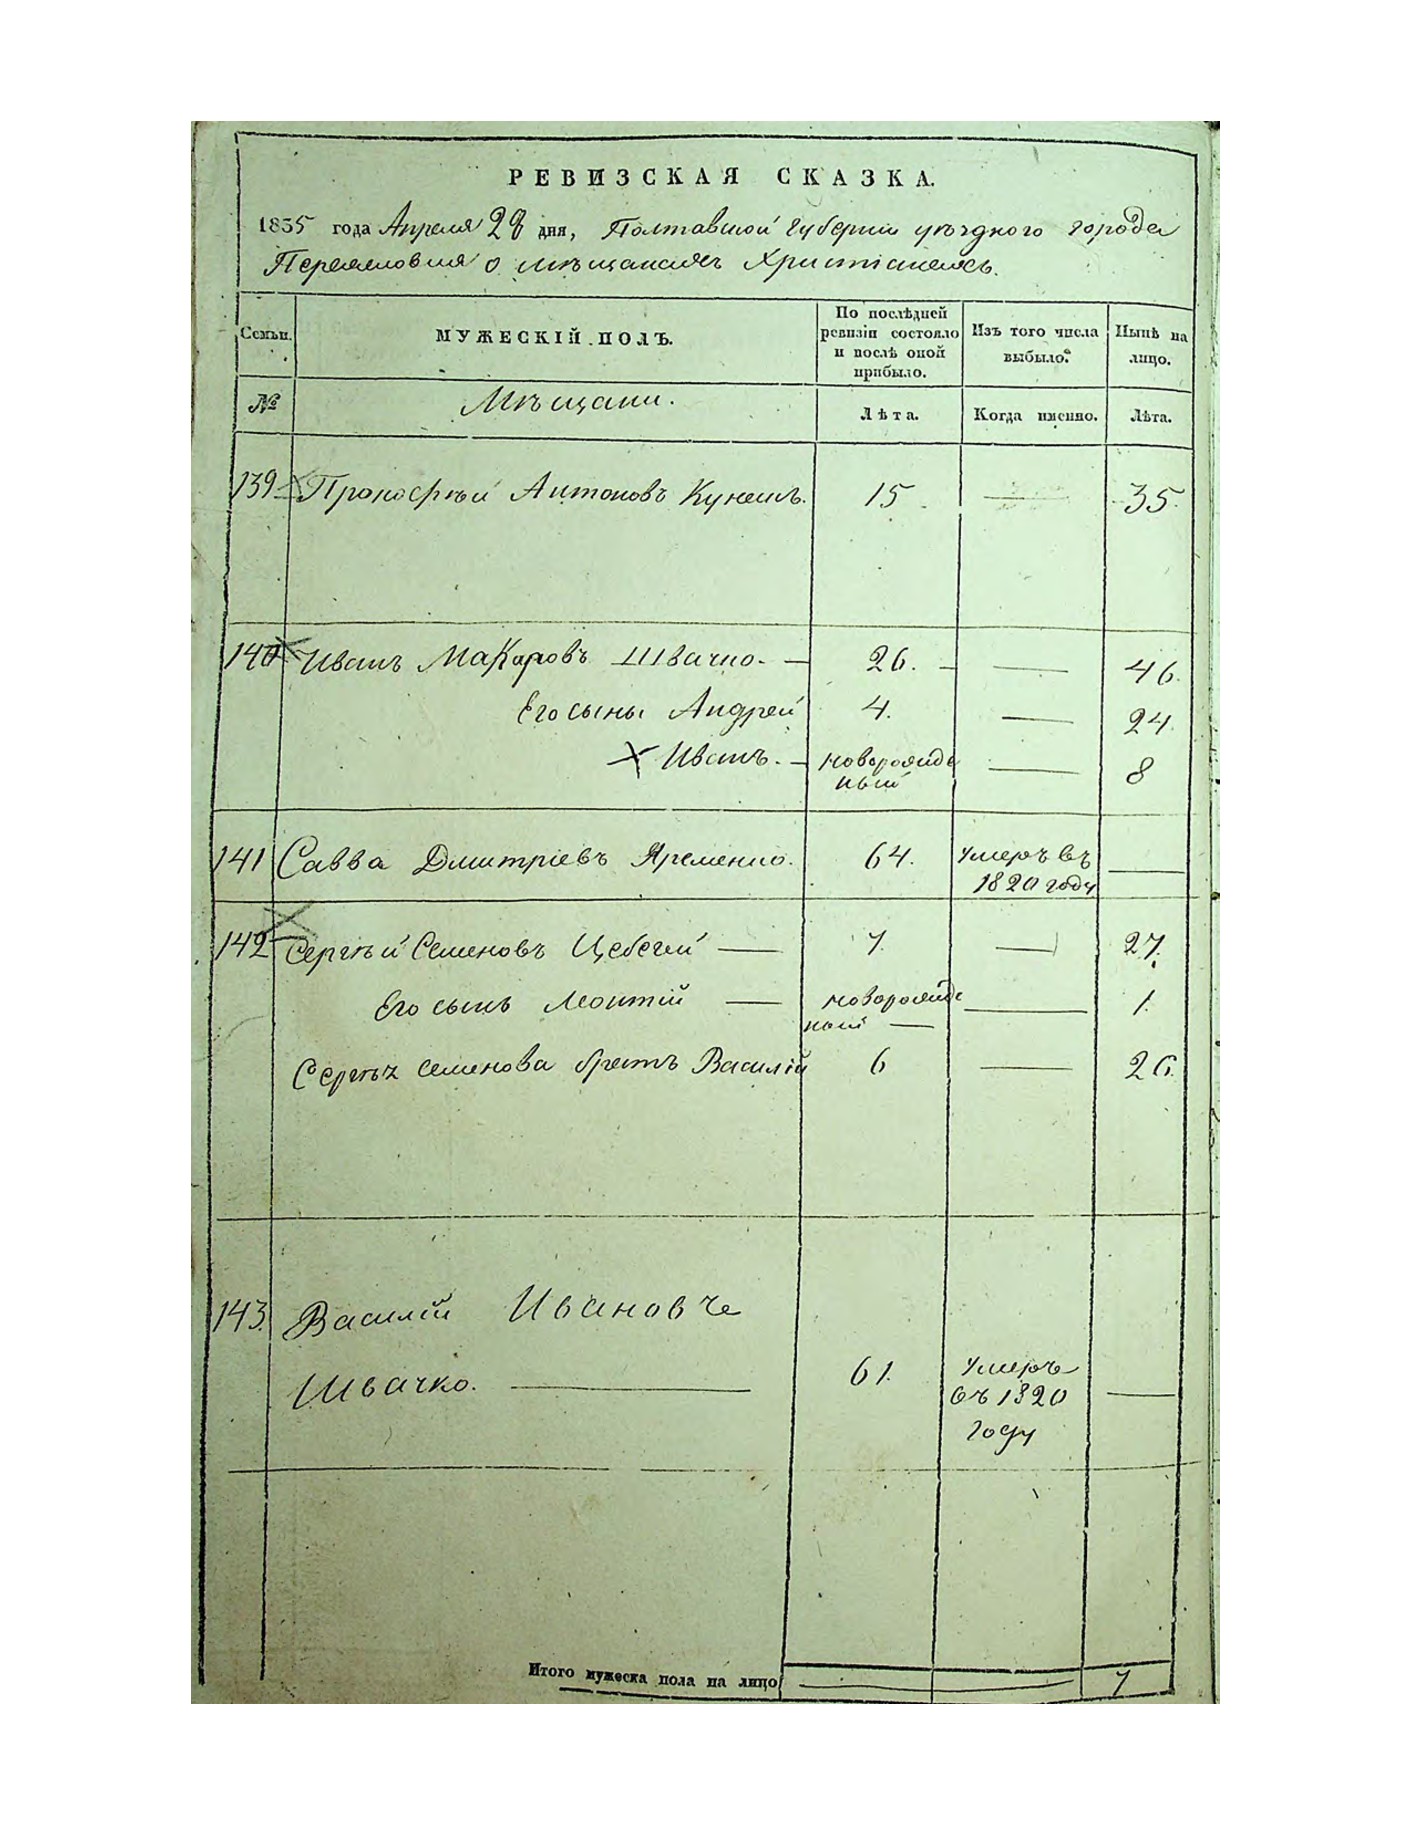 РЕВИЗСКАЯ СКАЗКА.
1835 года Апреля 28 дня, Полтавской Губернии уѣзднаго города
Переяловля о мѣщанахъ Христіанахъ.
Семьи. МУЖЕСКІЙ ПОЛЪ. По послѣдней ревизіи состояло и послѣ оной прибыло. Изъ того числа выбыло. Нынѣ на лицо.
№ Мѣщани. Лѣта. Когда именно. Лѣта.
139 Прокофѣй Антоновъ 15 — 35.
140 Иванъ Макаровъ Швачко. — 26. — — 46.
Его сыны Андрей 4. — 24
Иванъ. — новорожде
ный — 8
141 Савва Дмитріевъ Яременко. 64. умеръ въ —
1820 году
142 Сергѣй Семеновъ Цебегей — 7. — 27.
Его сынъ Леонтій — новорожде — 1.
ный —
Сергѣя Семенова братъ Василій 6 — 26.
143. Василій Ивановъ
Швачко. — 61. умеръ —
въ 1820
году
Итого мужеска пола на лицо 7